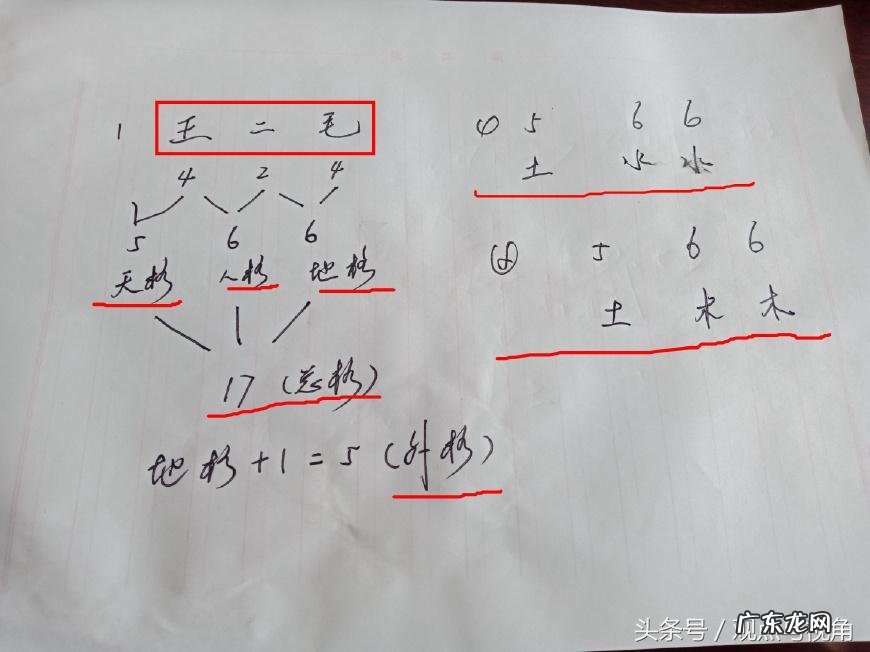 1 王 二 毛
4 2 4
1
5 6 6
天格 人格 地格
17 (总格)
地格+1=5 (外格)
① 5 6 6
土 水 水
② 5 6 6
土 木 木
头条号 / 观点与视角
广东龙网